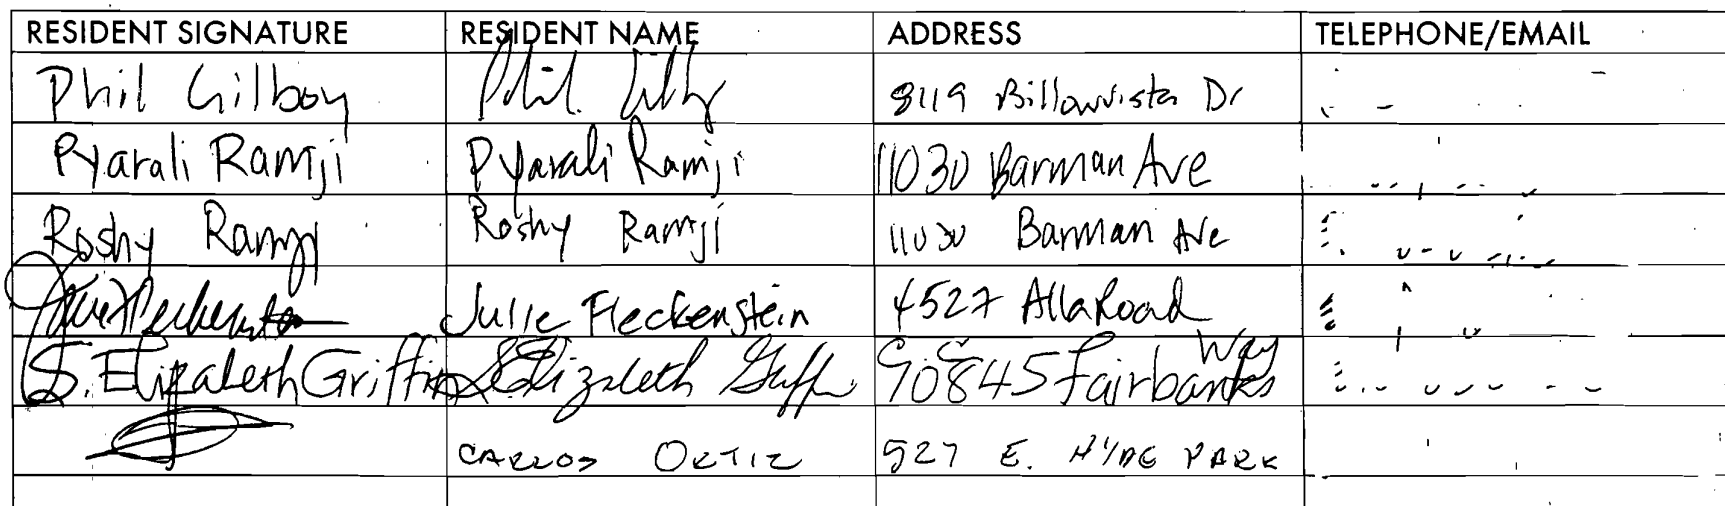 RESIDENT SIGNATURE RESIDENT NAME ADDRESS TELEPHONE/EMAIL
Phil Gilboy Phil 8119 Billowvista Dr
Pyarali Ramji Pyarali Ramji 11030 Barman Ave
Roshy Ramji Roshy Ramji 11030 Barman Ave
Julie Fleckenstein 4527 Alla Road
S. Elizabeth Griffin S Elizabeth Griffin Fairbanks Way
CARLOS ORTIZ 527 E. HYDE PARK